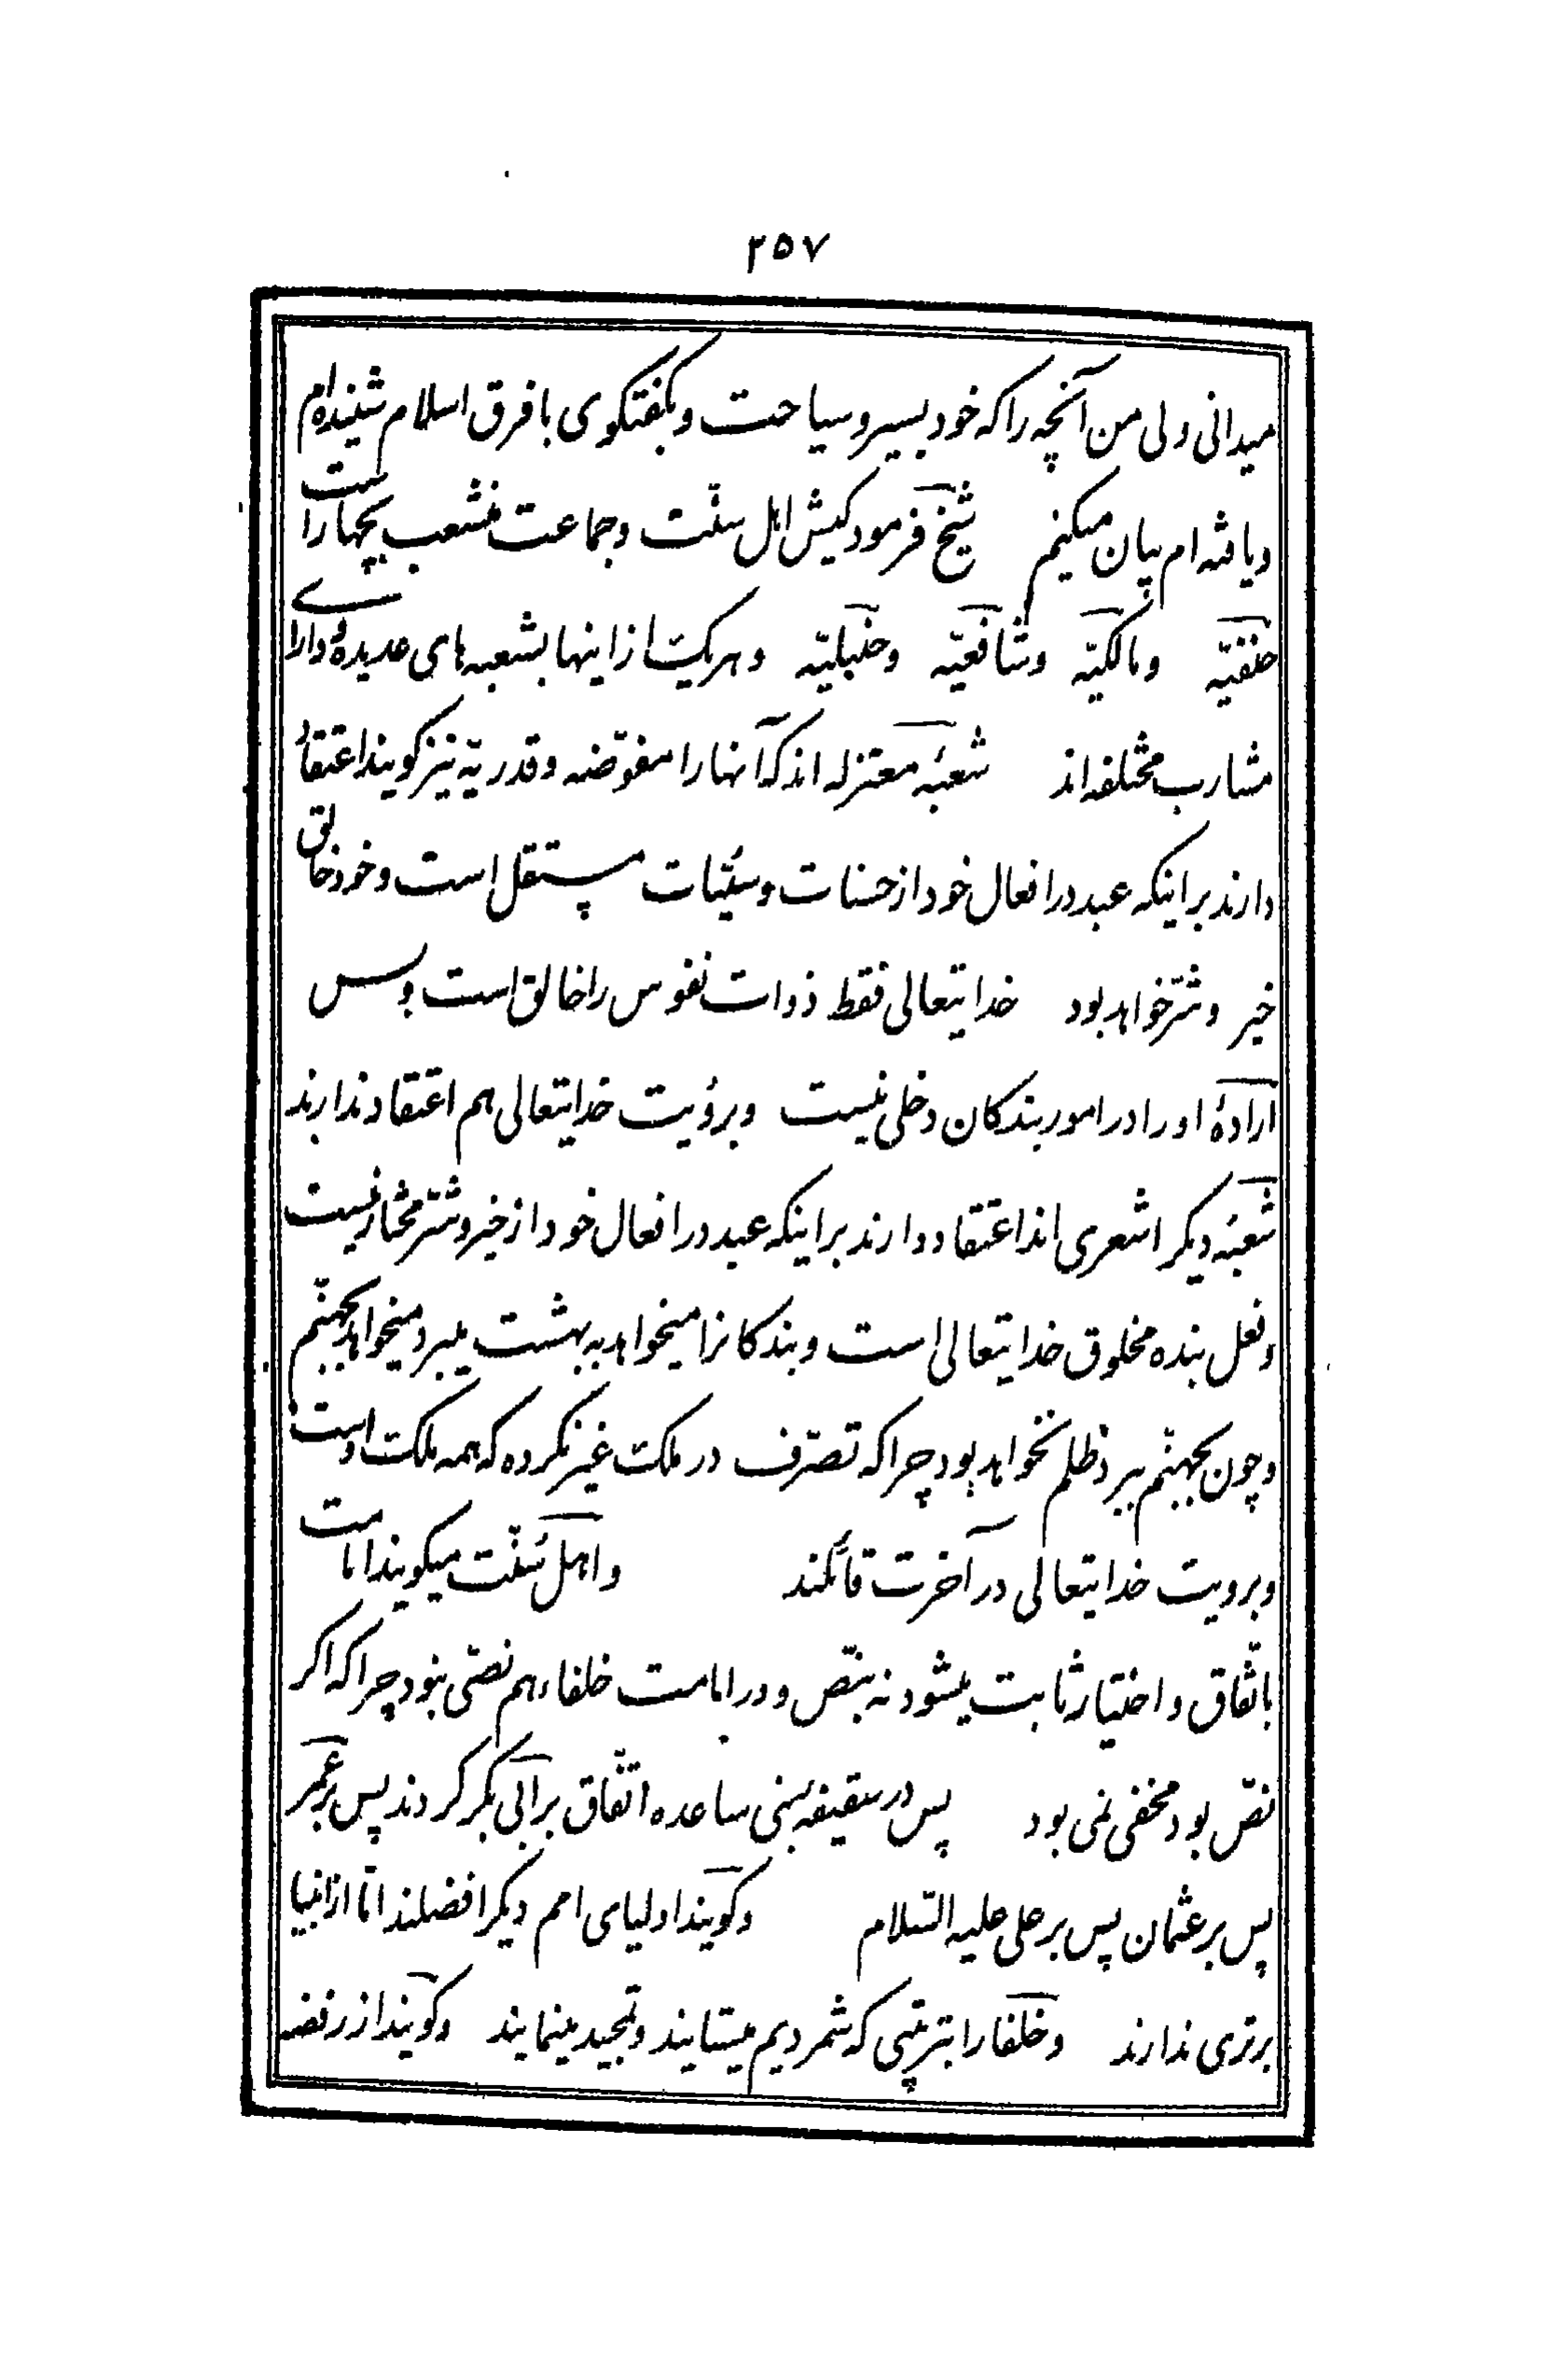 ۲۵۷
میدانی ولی من آنچه را که خود بسیر و سیاحت و بگفتگوی با فرق اسلام شنیده‌ام
و یافته ام بیان میکنم شیخ فرمود کیش اهل سنّت و جماعت منشعب بچهار است
حنفیّه و مالکیّه و شافعیّه و حنبلیّه و هر یکت از اینها بشعبه های عدیدهٔ و دارای
مشارب مختلفه اند شعبهٔ معتزله اند که آنها را مفوّضه و قدریّه نیز گویند اعتقاد
دارند بر اینکه عبد در افعال خود از حسنات و سیّئات مستقل است و خود خالق
خیر و شرّ خواهد بود خدایتعالی فقط ذوات نفوس را خالق است و بس
ارادهٔ او را در امور بندکان دخلی نیست و برؤیت خدایتعالی هم اعتقاد ندارند
شعبهٔ دیکر اشعری اند اعتقاد دارند بر اینکه عبد در افعال خود از خیر و شرّ مختار نیست
و فعل بنده مخلوق خدایتعالی است و بندکانرا میخواهد به بهشت میبرد میخواهد بجهنّم
و چون بجهنّم برد ظلم نخواهد بود چرا که تصرّف در ملکت غیر نکرده که همه ملکت اوست
و برویت خدایتعالی در آخرت قائلند و اهل سُنّت میکویند امامت
باتّفاق و اختیار ثابت میشود نه بنصّ و در امامت خلفاء هم نصّی نبود چرا که اکر
نصّ بود مخفی نمی بود پس در سقیفه بنی ساعده اتّفاق بر ابی بکر کردند پس بر عمر
پس بر عثمان پس بر علی علیه السّلام و کویند اولیای امم دیکر افضلند امّا از انبیا
برتری ندارند و خلفا را بترتیبی که شمردیم میستایند و تمجید مینمایند و کویند از رفضه